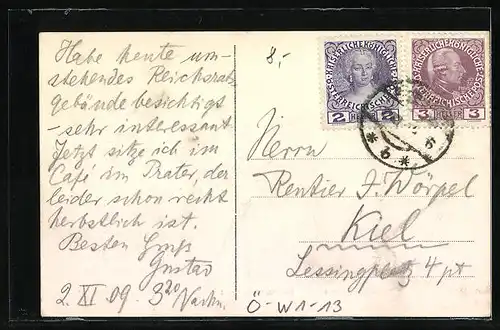 Habe heute um-
stehendes Reichsrats
gebäude besichtigt
- sehr interessant
Jetzt sitze ich im
Café im Prater, der
leider schon recht
herbstlich ist.
Besten Gruß
Gustav
2. XI 09. 3²⁰ Nachm.
8,-
KAISERLICHE KÖNIGLICHE
ÖSTERREICHISCHE POST
2 HELLER 2
KAISERLICHE KÖNIGLICHE
ÖSTERREICHISCHE POST
3 HELLER 3
* 6 *
Herrn
Rentier J. Wörpel
Kiel
Lessingplatz 4 pt
Ö-W1-13